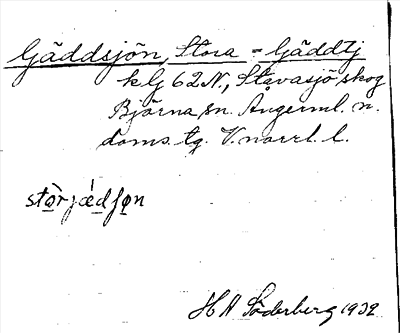 Gäddsjön, Stora = Gäddtj
klG 62 N., Stavasjö skog
Björna sn. Ångerml. n.
doms. tg. V.norrl. l.
stòrjǽdʃøn
H A Söderberg 1932